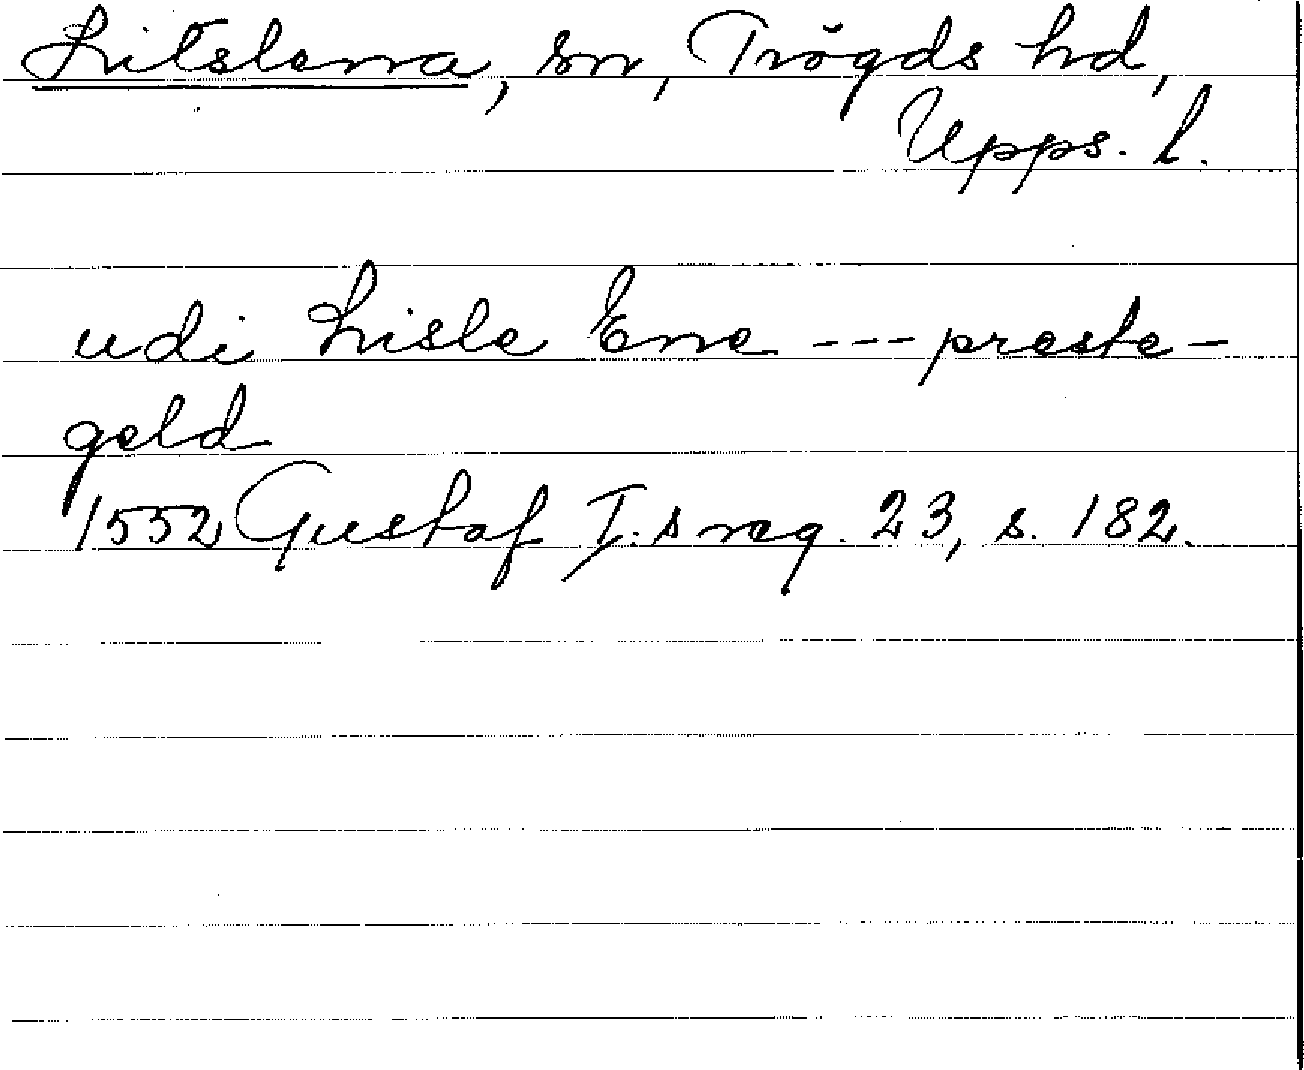 Litslena, sn, Trögds hd,
Upps. l.
udi Lisle Ene --- preste-
geld
1552 Gustaf I:s reg. 23, s. 182.